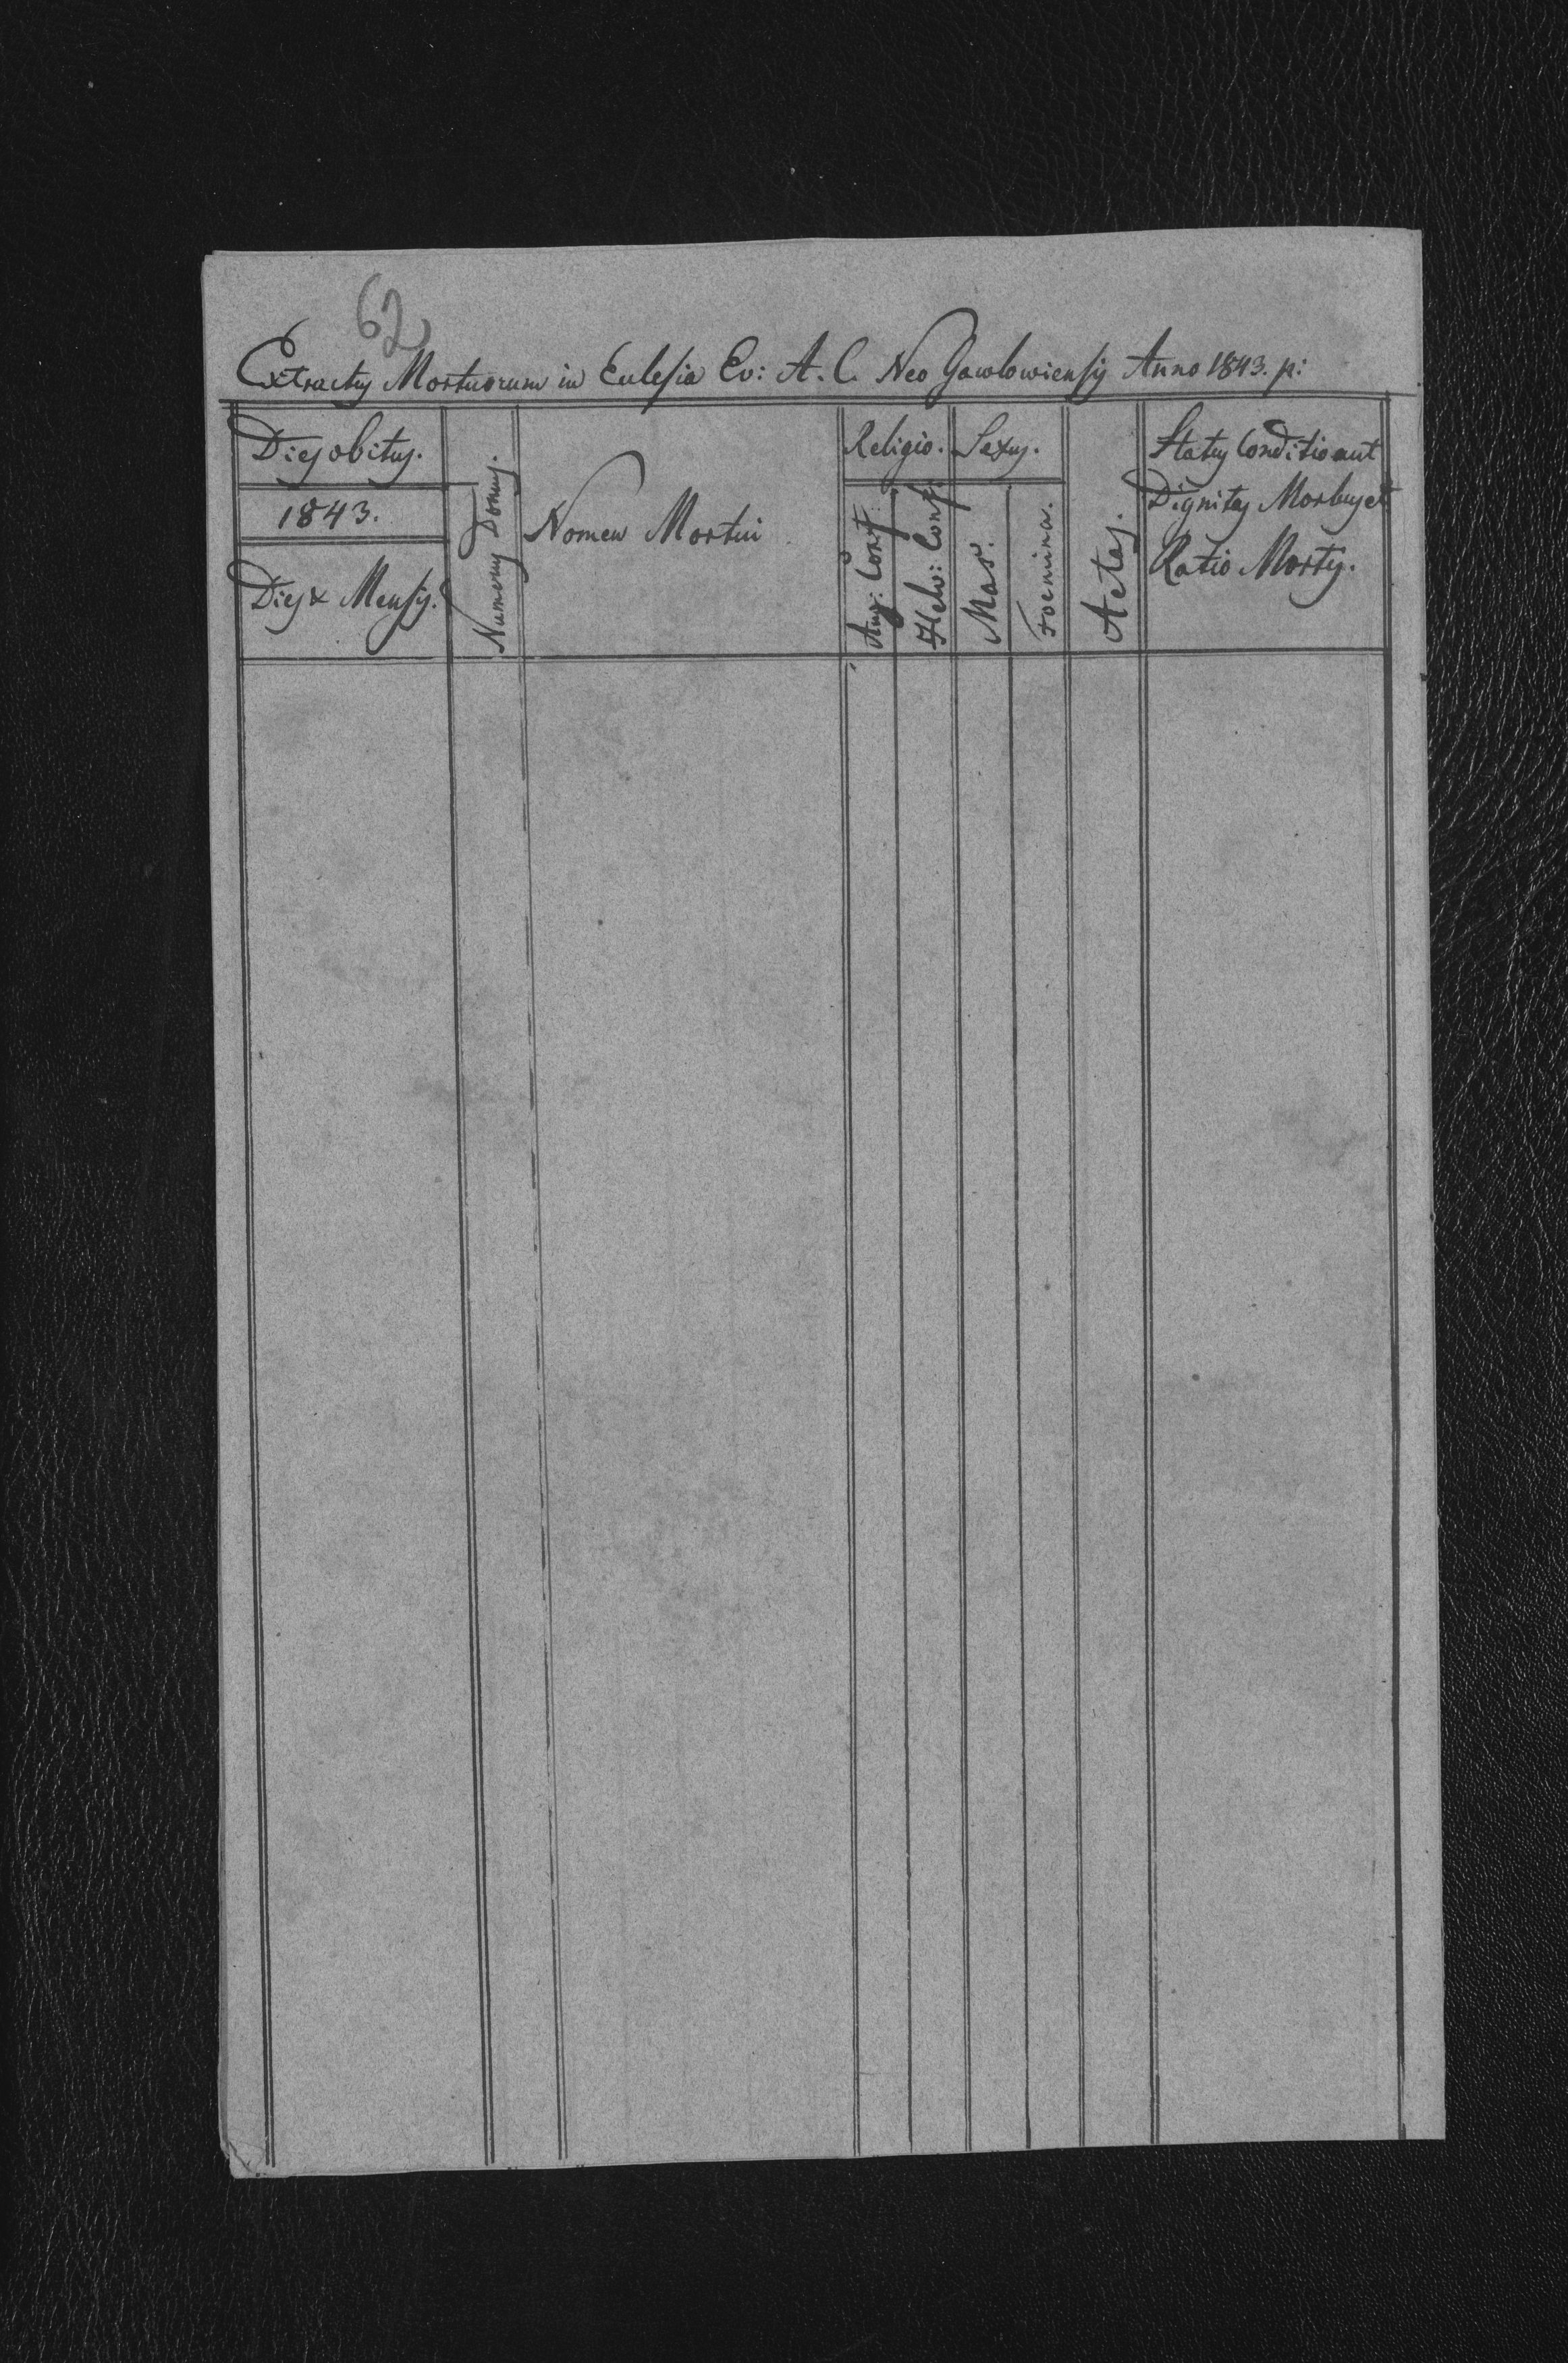 62
Extractus Mortuorum in Eclesia Ev: A. C. Neo Gawlowiensis Anno 1843. p:
Dies obitus.
1843.
Dies & Mensis.
Numerus Domus.
Nomen Mortui
Religio.
Aug: Conf:
Helv: Conf:
Sexus.
Mas.
Foemina.
Aetas.
Status Conditio aut
Dignitas Morbus et
Ratio Mortis.